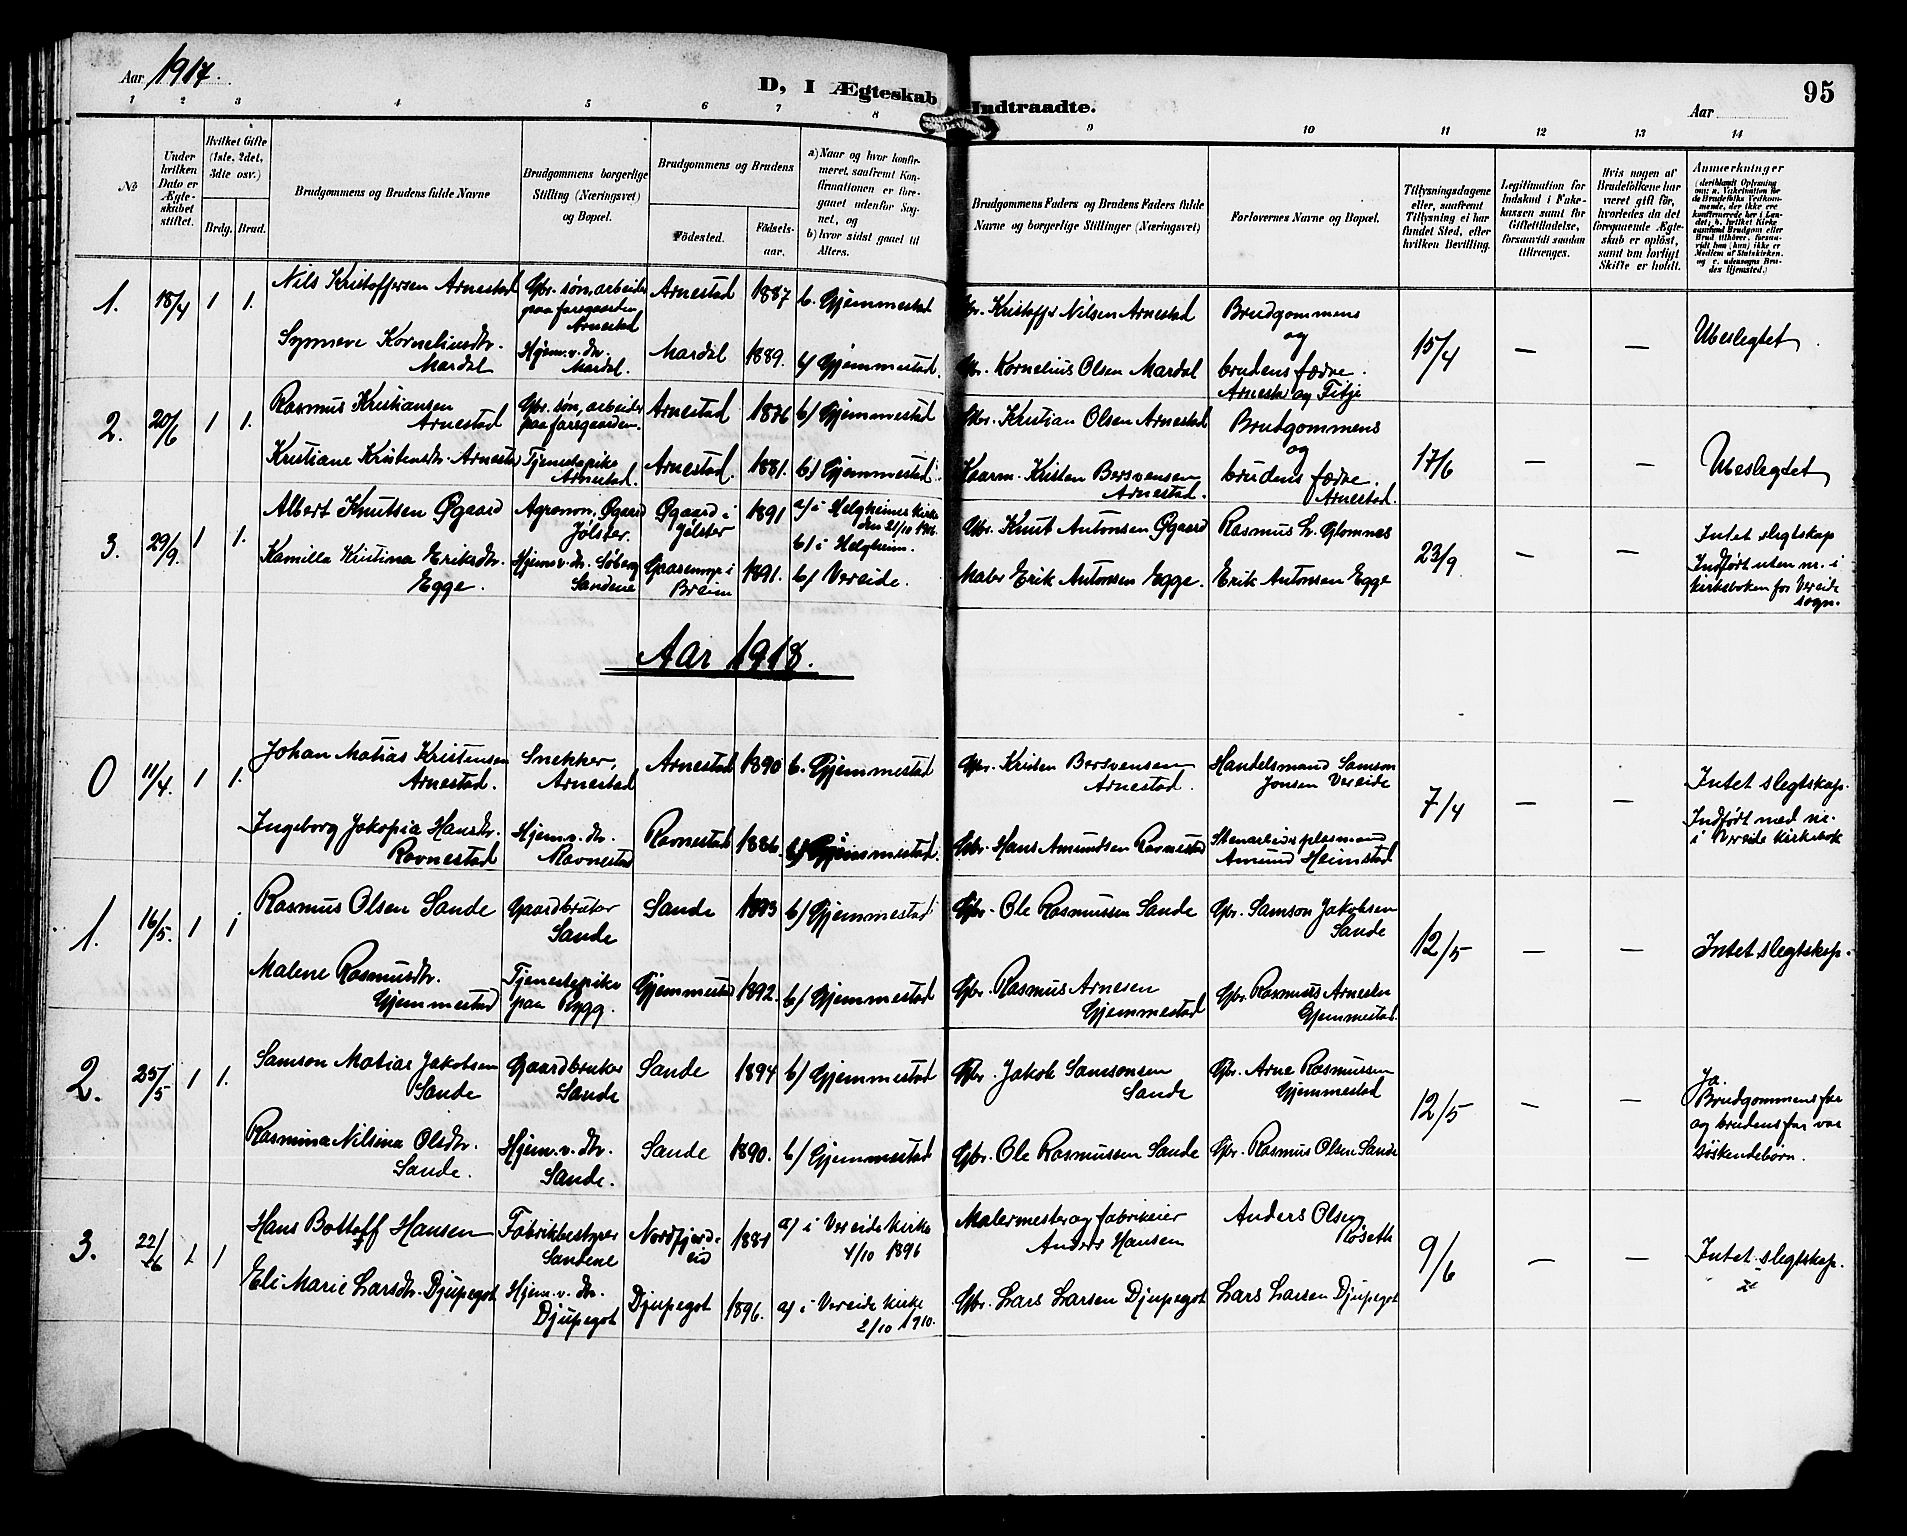 Aar 1917.
D, I Ægteskab Indtraadte.
95
Aar
1 2 3 4 5 6 7 8 9 10 11 12 13 14
No
Under hvilken Dato er Ægteskabet stiftet.
Hvilket Gifte (1ste, 2det, 3die osv.)
Brdg. Brud.
Brudgommens og Brudens fulde Navne
Brudgommens borgerlige Stilling (Næringsvei) og Bopæl.
Brudgommens og Brudens
Fødested.
Fødselsaar.
a) Naar og hvor konfirmeret, saafremt Konfirmationen er foregaaet udenfor Sognet, og
b) hvor sidst gaaet til Alters.
Brudgommens Faders og Brudens Faders fulde Navne og borgerlige Stillinger (Næringsvei)
Forlovernes Navne og Bopæl.
Tillysningsdagene eller, saafremt Tillysning ei har fundet Sted, efter hvilken Bevilling.
Legitimation for Indskud i Fakekassen samt for Giftetilladelse, forsaavidt saadan tiltrænges.
Hvis nogen af Brudefolkene har været gift før, hvorledes da det foregaaende Ægteskab er opløst, samt om lovligt Skifte er holdt.
Anmerkninger
1. 18/4 1 1. Nils Kristoffersen Arnestad Gbr. søn, arbeider paa farsgaarden Arnestad Arnestad 1887 b. Gjemmestad Gbr. Kristoffer Nilsen Arnestad Brudgommens og brudens fædre. Arnestad og Fitje 15/4 — — Ubeslegtet
Synneve Korneliusdtr. Mardal Hjem.v. dtr. Mardal. Mardal 1889. b/ Gjemmestad. Gbr. Kornelius Olsen Mardal
2. 20/6 1 1. Rasmus Kristiansen Arnestad Gbr. søn, arbeider paa farsgaarden. Arnestad 1876 b/ Gjemmestad Gbr. Kristian Olsen Arnestad Brudgommens og brudens fædre. Arnestad. 17/6 — — Ubeslegtet
Kristiane Kristensdtr. Arnestad Tjenestepike Arnestad. Arnestad. 1881. b/ Gjemmestad. Kaarm. Kristen Bersvensen Arnestad.
3. 29/9. 1 1. Albert Knutsen Øgaard Agronom, Øgaard Jølster. Øgaard i Jølster 1891 a/ i Helgheims kirke den 21/10 1906. b/ i Helgheim. Gbr. Knut Antonsen Øgaard Rasmus L. Glomnes 23/9 — — Intet slegtskap
Kamilla Kristina Eriksdtr. Egge. Hjem.v. dtr. Søberg Sandene Gaasemyr i Breim 1891. b/ Vereide. Maler Erik Antonsen Egge. Erik Antonsen Egge Indført uten nr. i kirkeboken for Vereide sogn.
Aar 1918.
0 11/4. 1 1. Johan Matias Kristensen Arnestad. Snekker, Arnestad Arnestad 1890 b. Gjemmestad Gbr. Kristen Bersvensen Arnestad. Handelsmand Samson Jonsen Vereide 7/4 — — Intet slegtskap.
Ingeborg Jakopia Hansdtr. Ravnestad Hjem.v. dtr. Ravnestad Ravnestad 1886. b/ Gjemmestad. Gbr. Hans Amundsen Ravnestad Amund Heimstad Indført med nr. i Vereide kirkebok
1. 16/5. 1 1 Rasmus Olsen Sande Gaardbruker Sande Sande 1893 b/ Gjemmestad Gbr. Ole Rasmussen Sande Gbr. Samson Jakobsen Sande 12/5 — — Intet slegtskap.
Malene Rasmusdtr. Gjemmestad Tjenestepike paa Rygg. Gjemmestad 1892. b/ Gjemmestad Gbr. Rasmus Arnesen Gjemmestad Gbr. Rasmus Arnesen Gjemmestad.
2. 25/5 1 1. Samson Matias Jakobsen Sande Gaardbruker Sande Sande 1894 b/ Gjemmestad Gbr. Jakob Samsonsen Sande Gbr. Arne Rasmussen Gjemmestad 12/5 — — Ja. Brudgommens far og brudens far var søskendebørn.
Rasmina Nilsina Olsdtr. Sande. Hjem.v. dtr. Sande. Sande 1890. b/ Gjemmestad Gbr. Ole Rasmussen Sande Gbr. Rasmus Olsen Sande
3. 22/6 1 1 Hans Bottolf Hansen Fabrikbestyrer Sandene Nordfjordeid 1881 a/ i Vereide kirke 4/10 1896 Malermester og fabrikeier Anders Hansen Anders Olsen Røseth 9/6 — — Intet slegtskap.
Eli Marie Larsdtr. Djupegot Hjem.v. dtr. Djupegot Djupegot 1896. a/ i Vereide kirke 2/10 1910. Gbr. Lars Larsen Djupegot Lars Larsen Djupegot